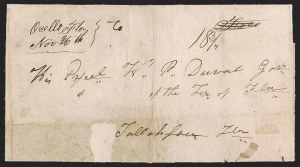 Ocella Flo } To
Nov 26th
18 3/4
His Excel. Wm P. Duval Gov
of the Ter of Flo
Tallahassee Flo